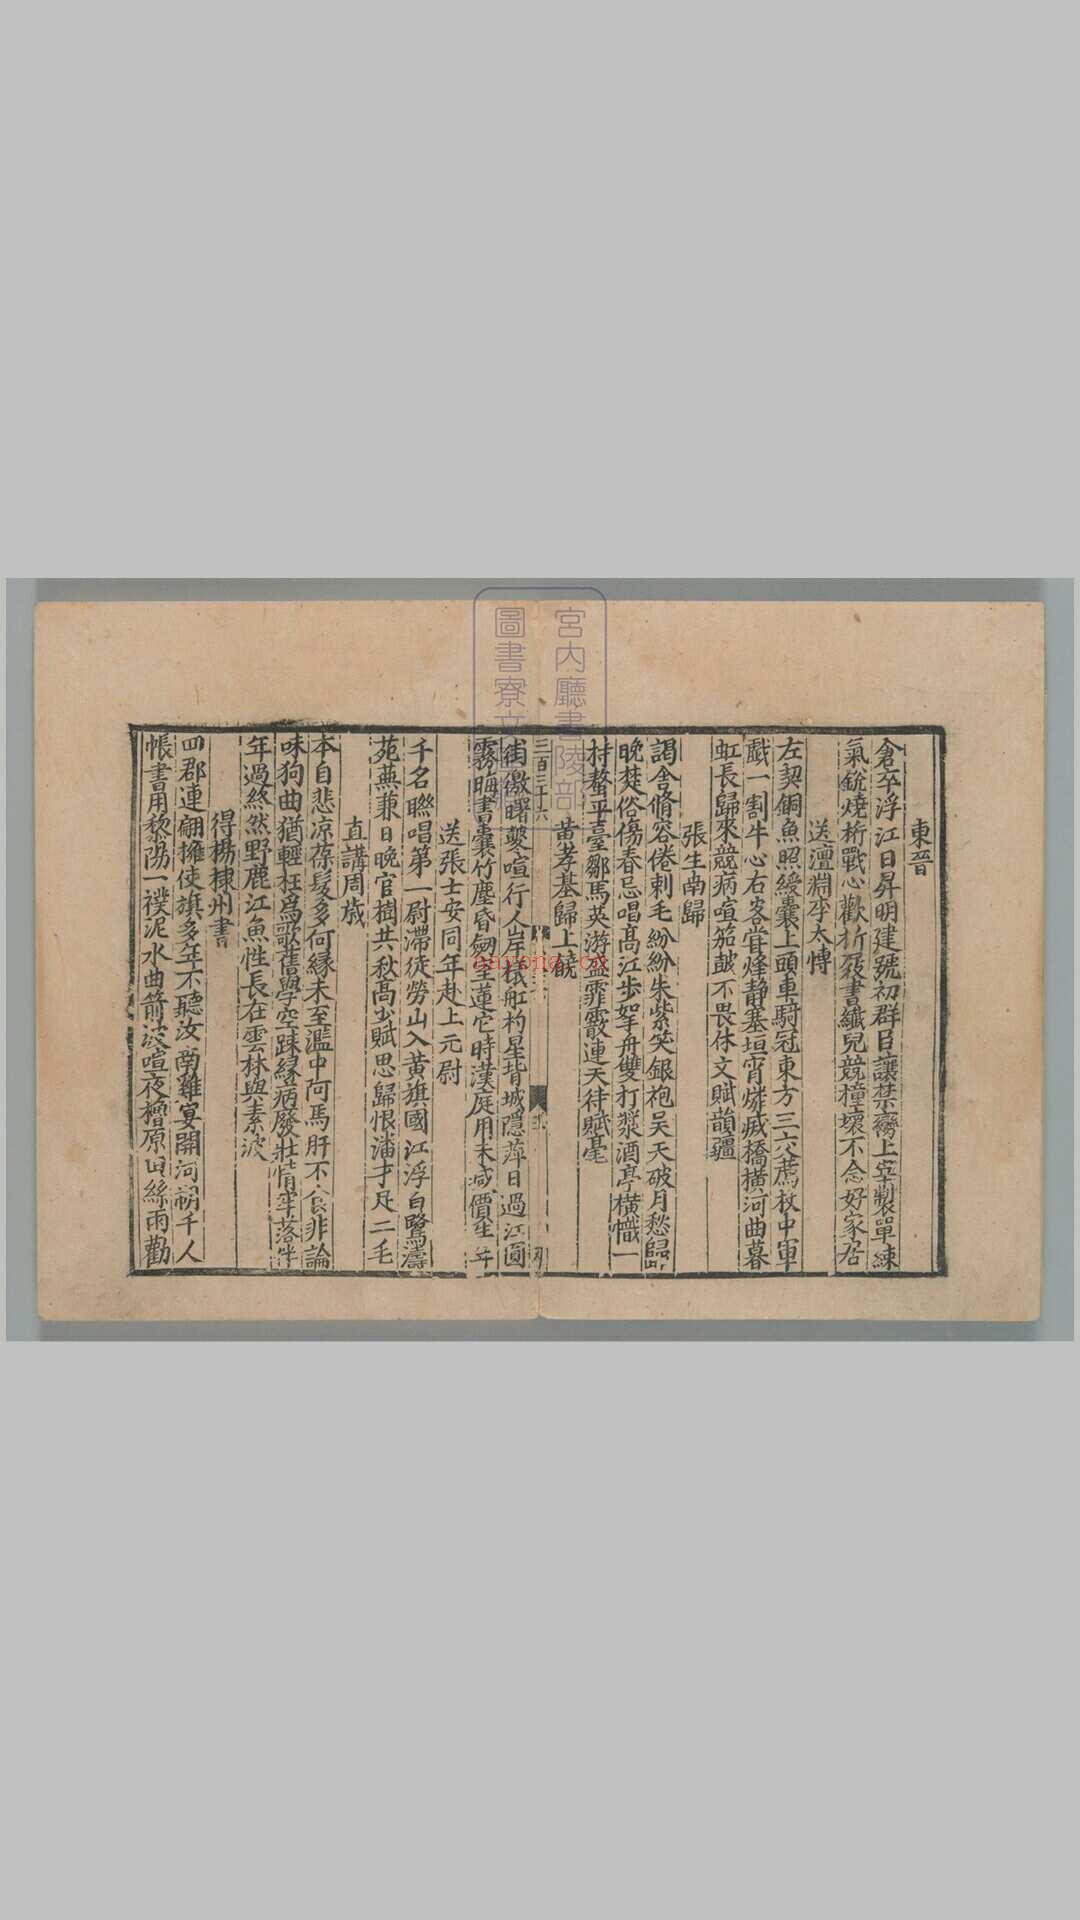 東晉
倉卒浮江日昇明建號初群臣讓禁臠上宰製單練
氣銳燒桁戰心歡折屐書纖兒競撞壞不念好家居
送澶淵李太傅
左契銅魚照綬囊上頭車騎冠東方三六薦枚中軍
戲一割牛心右客嘗烽靜塞垣宵燧滅橋橫河曲暮
虹長歸來競病喧笳鼓不畏休文賦韻彊
張生南歸
謁舍脩容倦刺毛紛紛朱紫笑銀袍吴天破月愁歸
晚楚俗傷春忌唱髙江步如拏舟雙打槳酒亭橫幟一
持螯平臺鄒馬英游盛霏霰連天待賦毫
黄孝基歸上饒
三百三十六
街徼曙鼕喧行人岸檥舡杓星背城隱萍日過江圓
霧晦書囊竹塵昏劒室蓮它時漢庭用未減價生年
送張士安同年赴上元尉
千名聮唱第一尉滯徒勞山入黄旗國江浮白鷺濤
苑蕪兼日晚官樹共秋髙少賦思歸恨潘才足二毛
直講周歲
本自悲凉葆髮多何緣未至濫中阿馬肝不食非論
味狗曲猶輕枉爲歌舊學空踈緣病廢壯情牢落伴
年過㷀然野鹿江魚性長在雲林與素波
得楊棣州書
四郡連翩擁使旗多年不聽汝南雞宴開河朔千人
帳書用黎陽一襆泥水曲箭波喧夜櫓原田絲雨勸
宮内廳書陵部
圖書寮文